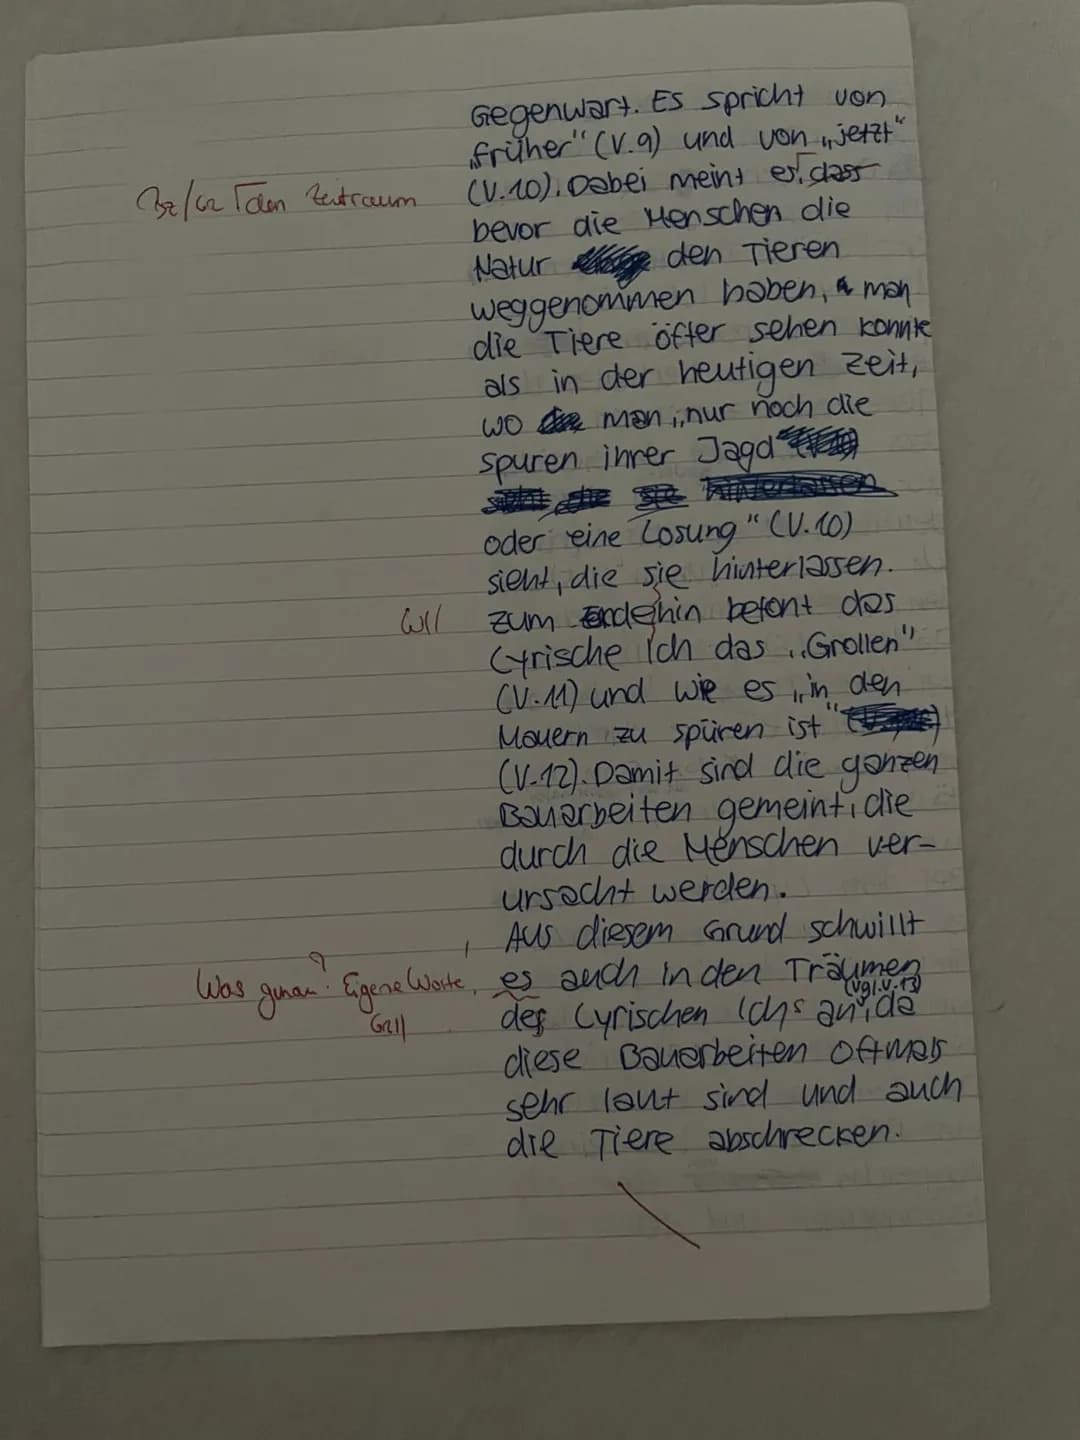 Gegenwart. Es spricht von
„früher" (V.9) und von „jetzt"
(V.10). Dabei meint es, dass
Bz/Gr den Zeitraum
bevor die Menschen die
Natur den Tieren
weggenommen haben, man
die Tiere öfter sehen konnte
als in der heutigen Zeit,
wo man „nur noch die
spuren ihrer Jagd
oder eine Losung" (V.10)
sieht, die sie hinterlassen.
W//
zum Endehin betont das
Lyrische Ich das „Grollen"
(V.11) und wie es „in den
Mauern zu spüren ist"
(V.12). Damit sind die ganzen
Bauarbeiten gemeint, die
durch die Menschen ver-
ursacht werden.
Aus diesem Grund schwillt
Was genau? Eigene Worte,
es auch in den Träumen
(vgl. V.13)
des Lyrischen Ichs an, da
diese Bauarbeiten oftmals
sehr laut sind und auch
die Tiere abschrecken.